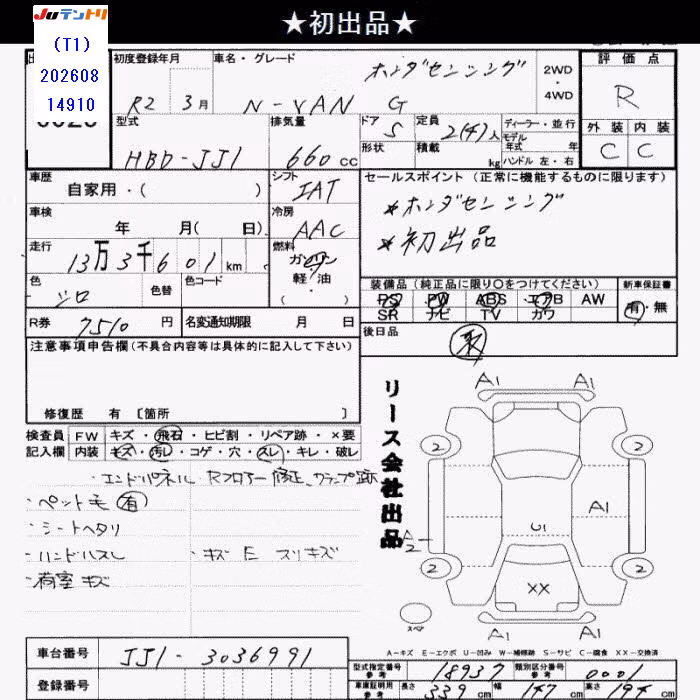 JUテントリ
★初出品★
(T1)
202608
14910
初度登録年月
車名・グレード
評価点
R2 3月
N-VAN G ホンダセンシング
2WD
・
4WD
R
型式
排気量
ドア
定員
ディーラー・並行
外装 内装
HBD-JJ1
660cc
5
2(4)人
モデル
年式 年
形状
積載
kg
ハンドル 左・右
C C
車歴
自家用・( )
シフト
IAT
セールスポイント(正常に機能するものに限ります)
*ホンダセンシング
*初出品
車検
年 月( 日)
冷房
AAC
走行
13万3千601km
燃料
ガソリン
軽・油
・
色
シロ
色替
色コード
装備品(純正品に限り○をつけてください)
新車保証書
PS PW ABS エアB AW
SR ナビ TV カワ
有・無
R券
7510円
名変通知期限 月 日
後日品
注意事項申告欄(不具合内容等は具体的に記入して下さい)
修復歴 有 [箇所 ]
検査員
記入欄
FW キズ・飛石・ヒビ割・リペア跡・×要
内装 キズ・汚レ・コゲ・穴・スレ・キレ・破レ
・エンドパネル Rフロアー修正、クランプ跡
・ペット毛 有
・シートヘタリ
・ハンドルスレ
・キズ E スリキズ
・荷室キズ
リース会社出品
A1 A1
2 2
A2
A1
U1
2 2
XX
A1 A1
スペア
A-キズ E-エクボ U-凹み W-補修跡 S-サビ C-腐食 XX-交換済
車台番号
JJ1-3036991
登録番号
型式指定番号
参考
18937
類別区分番号
参考
0001
車庫証明用
参考
長さ
339cm
幅
147cm
高さ
cm